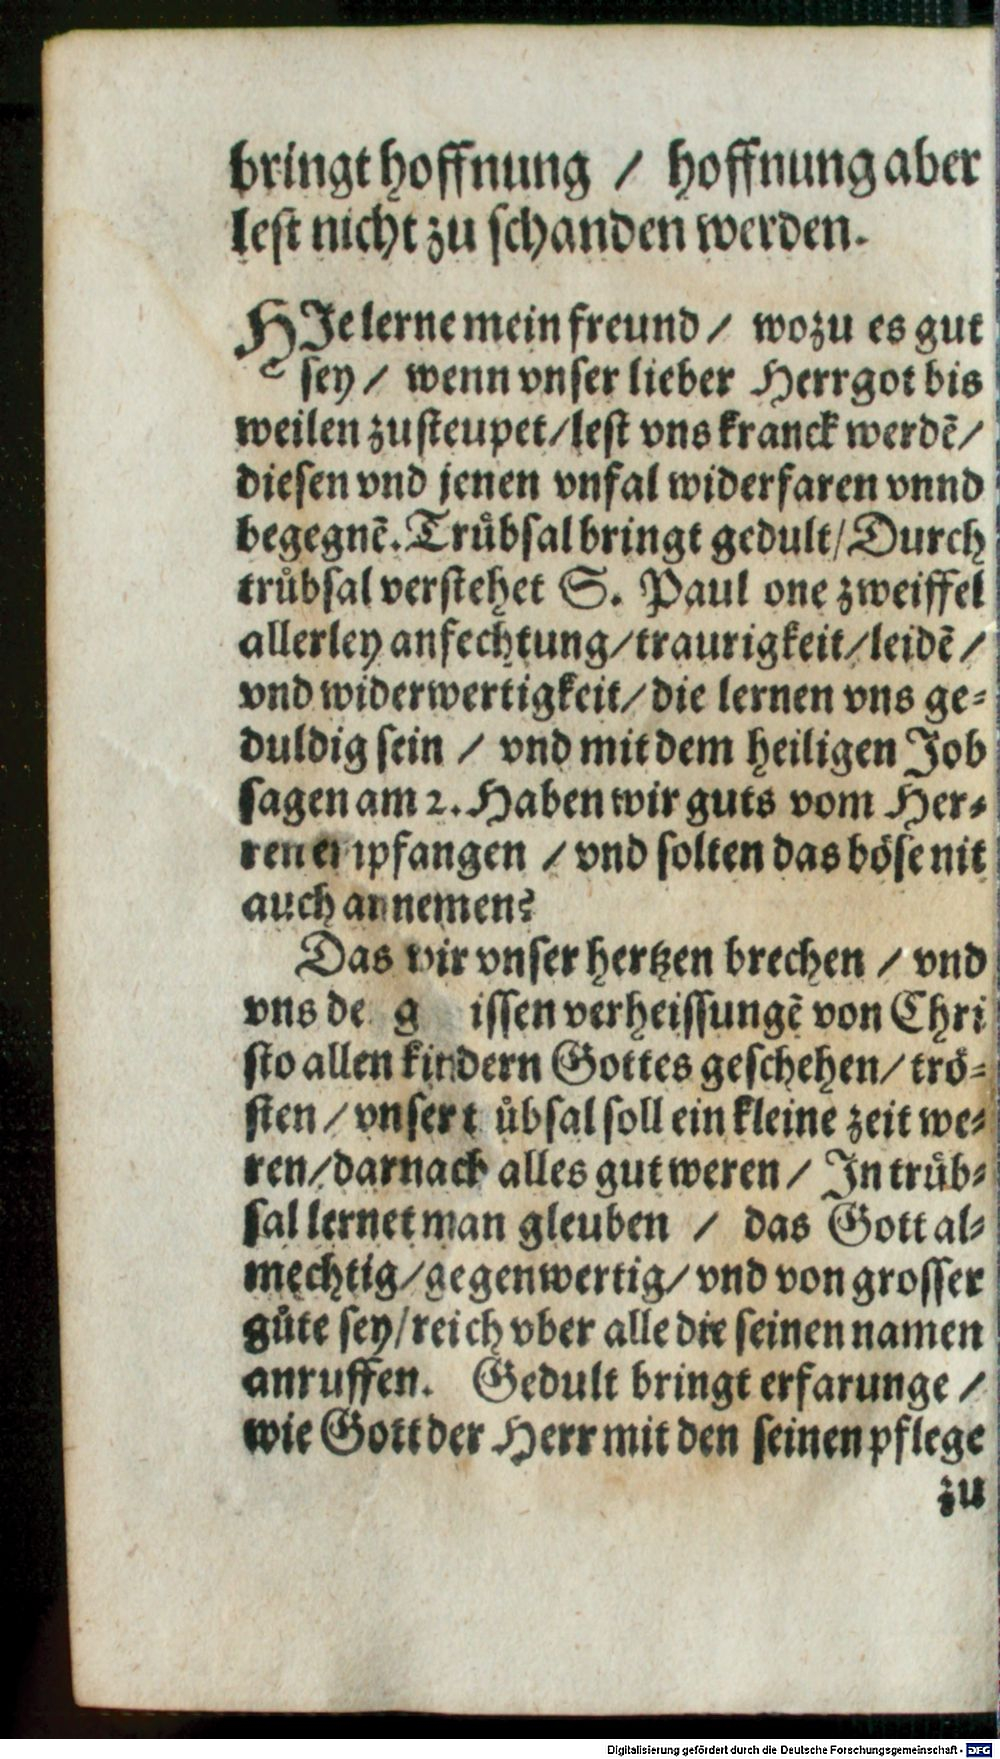 bringt hoffnung / hoffnung aber
lest nicht zu schanden werden.
HJe lerne mein freund / wozu es gut
sey / wenn vnser lieber Herrgot bis
weilen zusteupet / lest vns kranck werdẽ /
diesen vnd jenen vnfal widerfaren vnnd
begegnẽ. Trůbsal bringt gedult / Durch
trůbsal verstehet S. Paul one zweiffel
allerley anfechtung / traurigkeit / leidẽ /
vnd widerwertigkeit / die lernen vns ge-
duldig sein / vnd mit dem heiligen Job
sagen am 2. Haben wir guts vom Her-
ren empfangen / vnd solten das böse nit
auch annemen?
Das wir vnser hertzen brechen / vnd
vns de g issen verheissungẽ von Chri
sto allen kindern Gottes geschehen / trö-
sten / vnser t übsal soll ein kleine zeit we-
ren / darnach alles gut weren / In trůb-
sal lernet man gleuben / das Gott al-
mechtig / gegenwertig / vnd von grosser
gůte sey / reich vber alle die seinen namen
anruffen. Gedult bringt erfarunge /
wie Gott der Herr mit den seinen pflege
zu
Digitalisierung gefördert durch die Deutsche Forschungsgemeinschaft - DFG